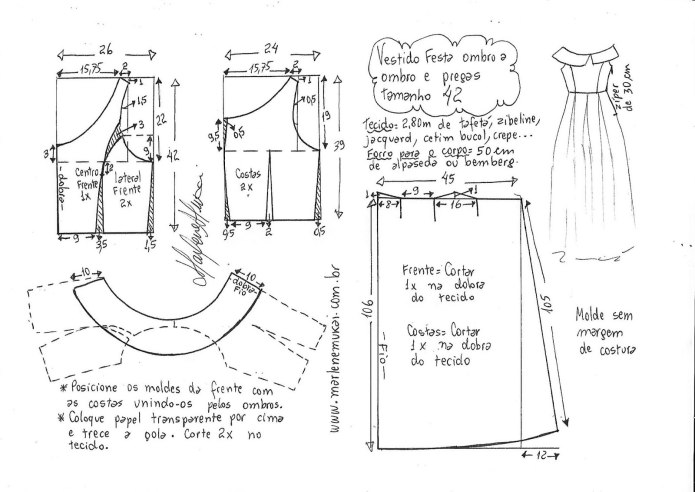 26
15,75
2
1
1,5
3
22
42
9
3
2
Centro
Frente
1x
-dobra-
lateral
Frente
2x
9
3,5
1,5
24
15,75
2
1
0,5
9,5
0,5
19
39
Costas
2x
9
0,5
2
0,5
Marlene Mukai
Vestido Festa ombro a
ombro e pregas
tamanho 42
Tecido= 2,80m de tafetá, zibeline,
jacquard, cetim bucol, crepe...
Forro para o corpo= 50cm
de alpaseda ou bemberg.
zíper
de 30cm
45
1
9
1
8
16
106
105
Frente= Cortar
1x na dobra
do tecido
Costas= Cortar
1x na dobra
do tecido
-Fio-
12
Molde sem
margem
de costura
10
10
dobra-
Fio
www.marlenemukai.com.br
* Posicione os moldes da frente com
as costas unindo-os pelos ombros.
* Coloque papel transparente por cima
e trece a gola. Corte 2x no
tecido.